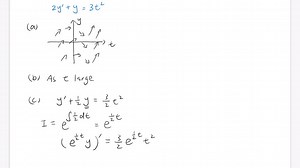 2y' + y = 3t²
(a)
y
t
(b) As t large
(c) y' + ½ y = 3/2 t²
I = e^∫½dt = e^½t
(e^½t y)' = 3/2 e^½t t²